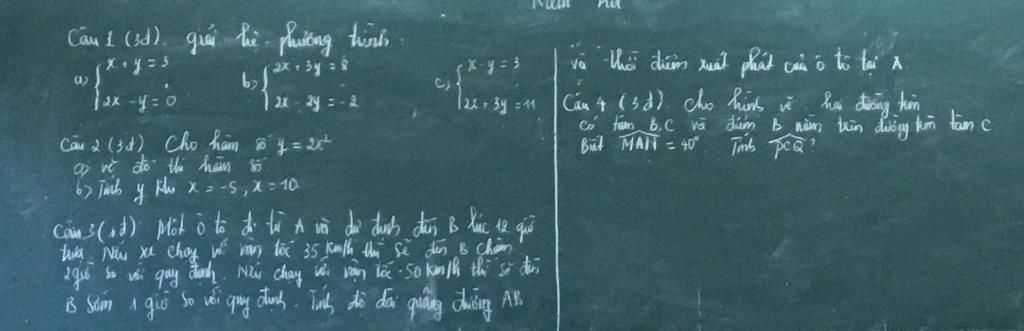 Kiểm tra
Câu 1 (3đ). giải hệ phương trình:
a) { x + y = 3
2x - y = 0
b) { 2x + 3y = 8
2x - 2y = -2
c) { x - y = 3
2x + 3y = 11
Câu 2 (3đ) Cho hàm số y = 2x²
a) vẽ đồ thị hàm số
b) Tính y khi x = -5, x = 10
Câu 3 (1đ) Một ô tô đi từ A và dự định đến B lúc 12 giờ
trưa. Nếu xe chạy với vận tốc 35 km/h thì sẽ đến B chậm
2 giờ so với quy định. Nếu chạy với vận tốc 50 km/h thì sẽ đến
B sớm 1 giờ so với quy định. Tính độ dài quãng đường AB
và thời điểm xuất phát của ô tô tại A.
Câu 4 (3đ). Cho hình vẽ hai đường tròn
có tâm B, C và điểm B nằm trên đường tròn tâm C
Biết MAN = 40° Tính PCQ?